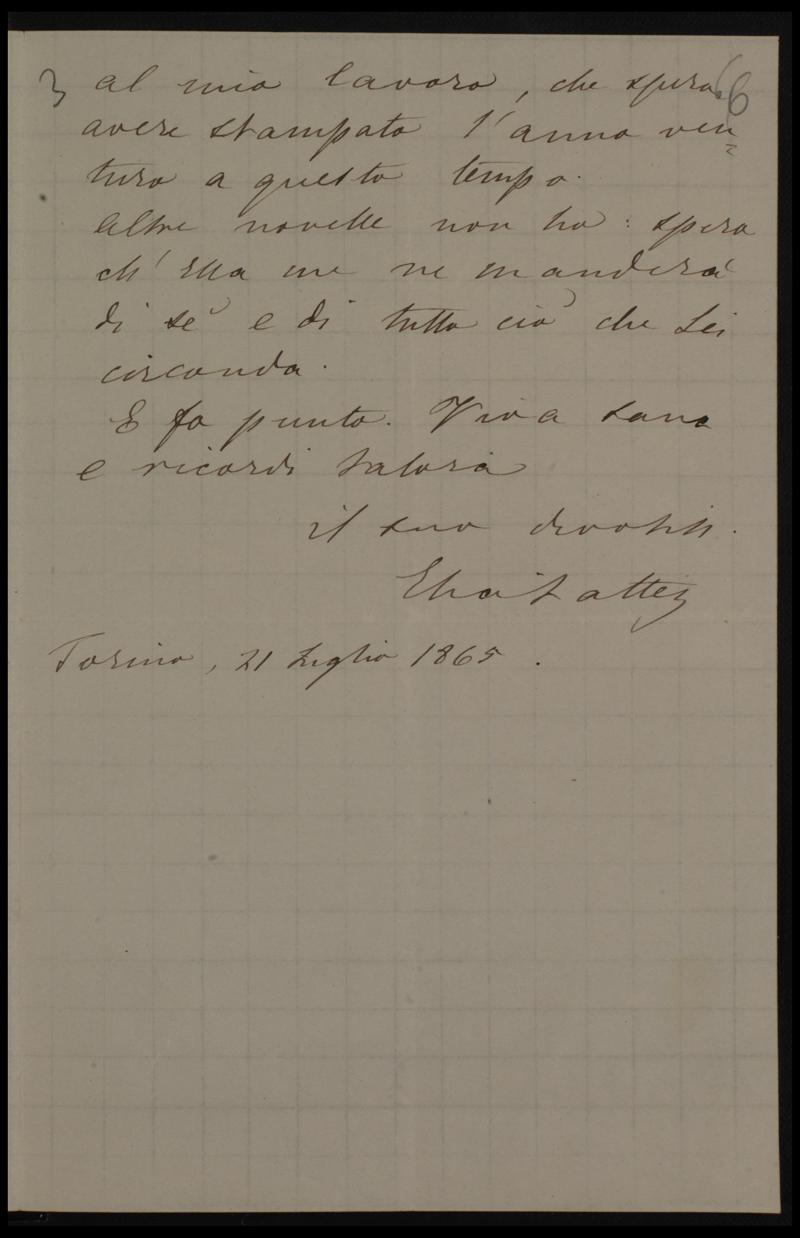 3 al mio lavoro, che spero 66
avere stampato l'anno ven=
turo a questo tempo.
Altre novelle non ho: spero
ch'Ella me ne manderà
di sè e di tutto ciò che Lei
circonda.
E fo punto. Viva sano
e ricordi talora
il suo devotiss.
Elia Lattes
Torino, 21 Luglio 1865.